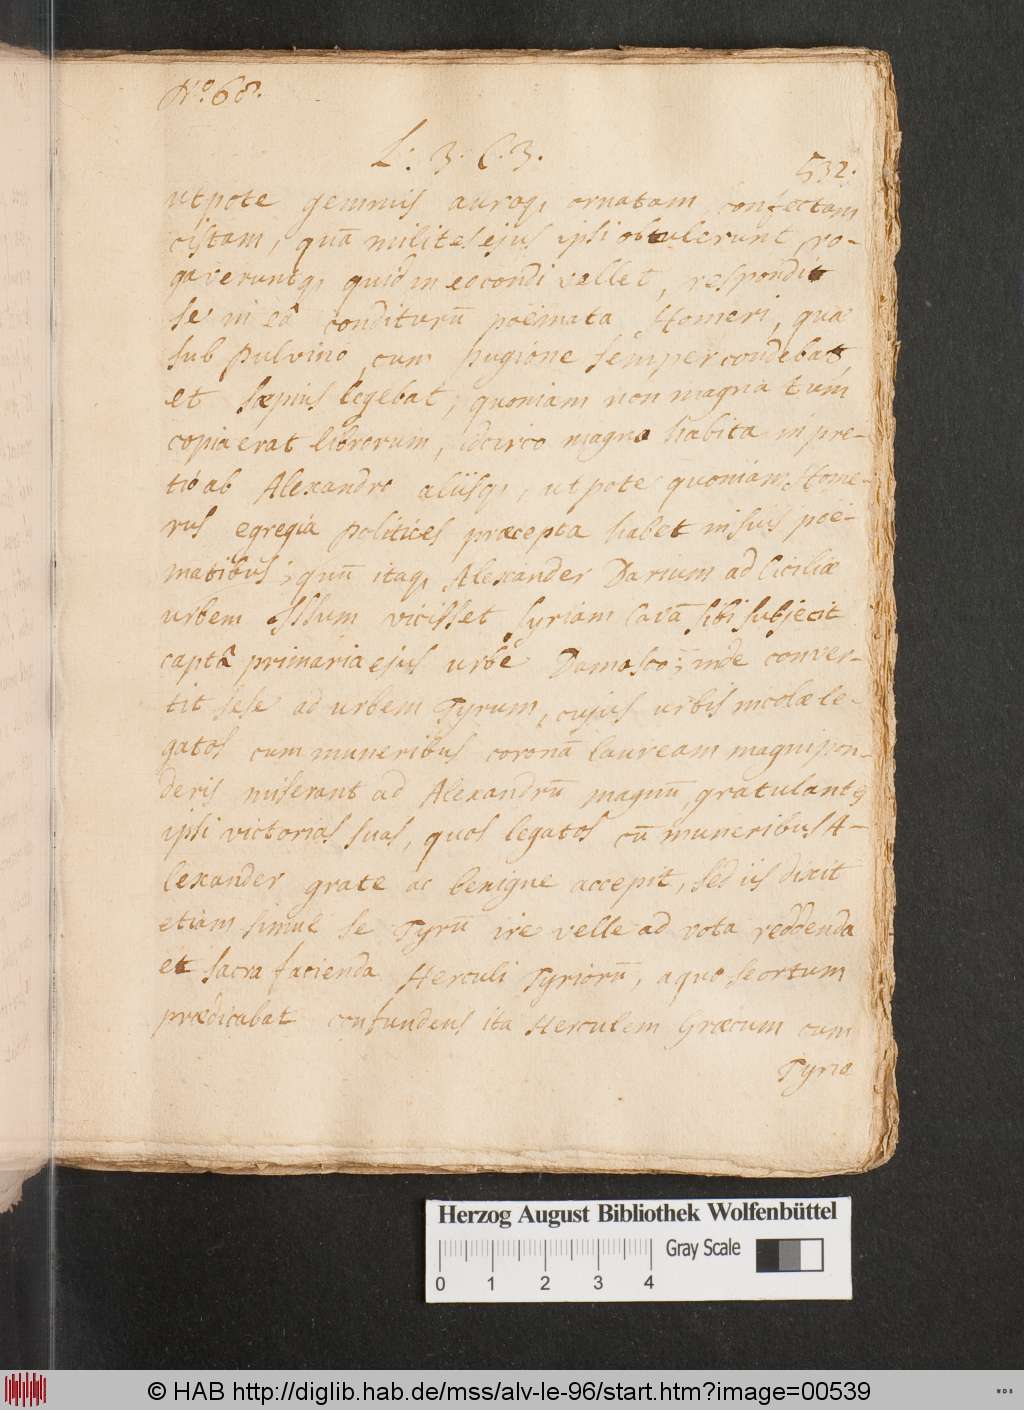 No. 68.
L: 3. C. 3.
532.
utpote gemmis auroq, ornatam confectam
cistam, quā milites ejus ipsi obtulerunt, ro-
gaveruntq, quid in eo condi vellet, respondit
se in eâ conditurū poëmata Homeri, quæ
sub pulvino cum pugione semper condebat,
et sæpius legebat, quoniam non magna tum
copia erat librorum, idcirco magno habita in pre-
tio ab Alexandro aliisq, utpote quoniam Home-
rus egregia politices præcepta habet in suis poë-
matibus; quū itaq, Alexander Darium ad Ciciliæ
urbem Issum vicisset Syriam Cavā sibi subjecit
captâ primaria ejus urbe Damasco; inde conver-
tit sese ad urbem Tyrum, cujus urbis incolæ le-
gatos cum muneribus coronā lauream magni pon-
deris miserant ad Alexandrū magnū, gratulantes
ipsi victorias suas, quos legatos cū muneribus A-
lexander grate ac benigne accepit, sed iis dixit
etiam simul se Tyrū ire velle ad vota reddenda
et sacra facienda Herculi Tyriorū, a quo se ortum
prædicabat confundens ita Herculem Græcum cum
Tyrio
Herzog August Bibliothek Wolfenbüttel
Gray Scale
0 1 2 3 4
© HAB http://diglib.hab.de/mss/alv-le-96/start.htm?image=00539